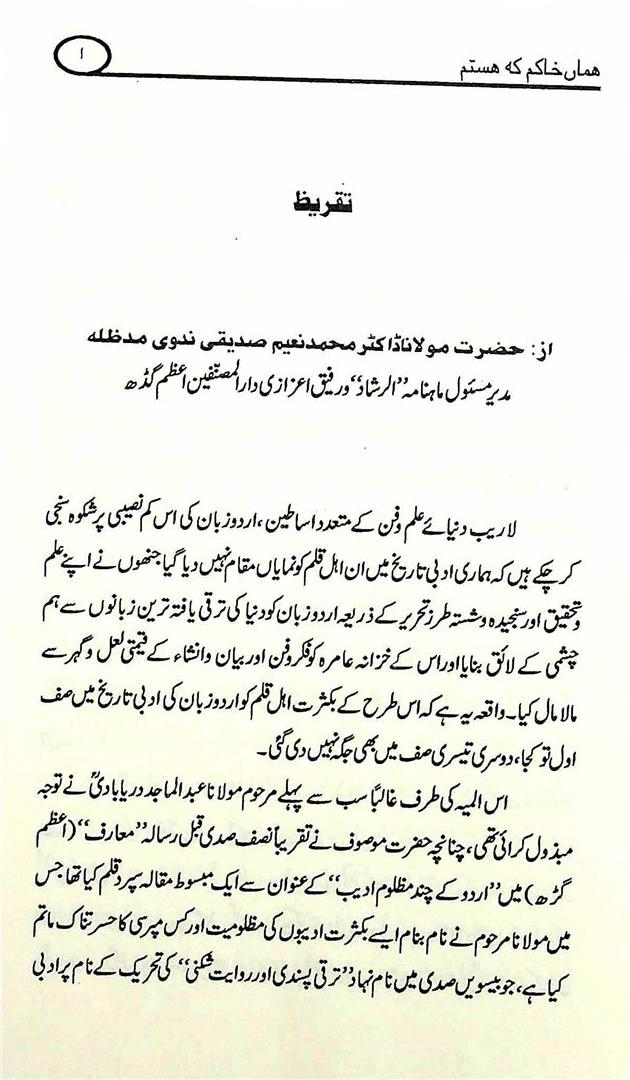 ھماں خاکم کہ ھستم
۱
تقریظ
از: حضرت مولانا ڈاکٹر محمد نعیم صدیقی ندوی مدظلہ
مدیر مسئول ماہنامہ ”الرشاد“ و رفیق اعزازی دارالمصنّفین اعظم گڈھ
لاریب دنیائے علم وفن کے متعدد اساطین، اردو زبان کی اس کم نصیبی پر شکوہ سنجی
کرچکے ہیں کہ ہماری ادبی تاریخ میں ان اہل قلم کو نمایاں مقام نہیں دیا گیا جنھوں نے اپنے علم
وتحقیق اور سنجیدہ وشستہ طرز تحریر کے ذریعہ اردو زبان کو دنیا کی ترقی یافتہ ترین زبانوں سے ہم
چشمی کے لائق بنایا اور اس کے خزانہ عامرہ کو فکر وفن اور بیان وانشاء کے قیمتی لعل وگہر سے
مالا مال کیا۔ واقعہ یہ ہے کہ اس طرح کے بکثرت اہل قلم کو اردو زبان کی ادبی تاریخ میں صف
اول تو کجا، دوسری تیسری صف میں بھی جگہ نہیں دی گئی۔
اس المیہ کی طرف غالباً سب سے پہلے مرحوم مولانا عبدالماجد دریابادیؒ نے توجہ
مبذول کرائی تھی، چنانچہ حضرت موصوف نے تقریباً نصف صدی قبل رسالہ ”معارف“ (اعظم
گڑھ) میں ”اردو کے چند مظلوم ادیب“ کے عنوان سے ایک مبسوط مقالہ سپرد قلم کیا تھا جس
میں مولانا مرحوم نے نام بنام ایسے بکثرت ادیبوں کی مظلومیت اور کس مپرسی کا حسرتناک ماتم
کیا ہے، جو بیسویں صدی میں نام نہاد ”ترقی پسندی اور روایت شکنی“ کی تحریک کے نام پر ادبی